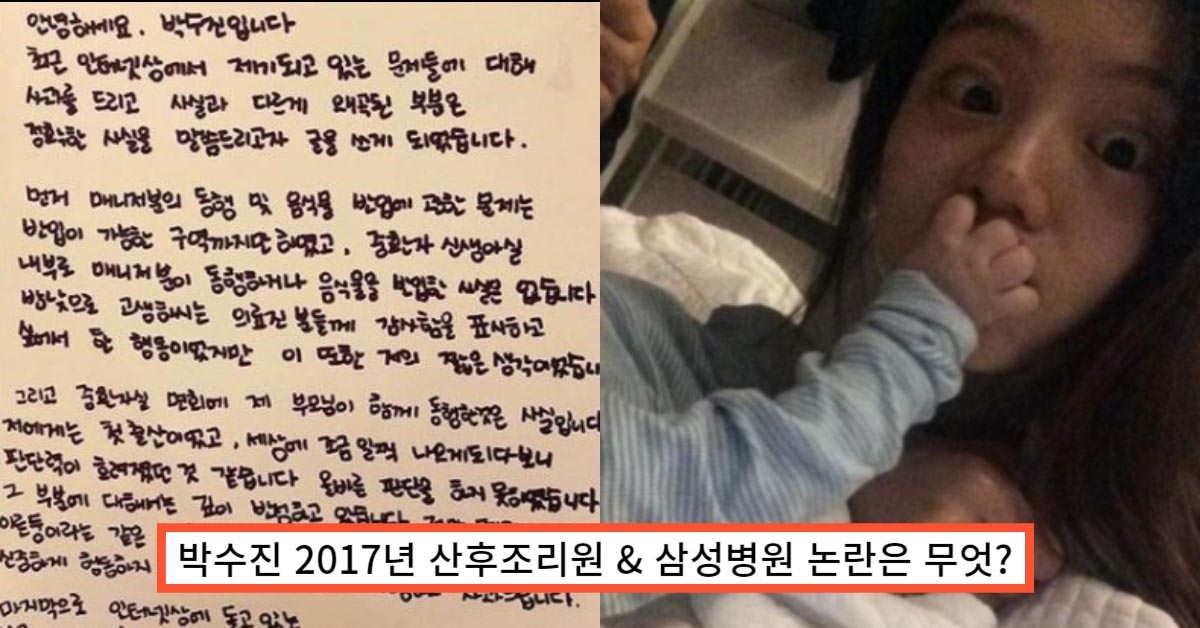 안녕하세요. 박수진입니다
최근 인터넷상에서 제기되고 있는 문제들에 대해
사과를 드리고 사실과 다르게 왜곡된 부분은
정확한 사실을 말씀드리고자 글을 쓰게 되었습니다.
먼저 매니저분의 동행 및 음식물 반입에 관한 문제는
반입이 가능한 구역까지만 하였고, 중환자 신생아실
내부로 매니저분이 동행하거나 음식물을 반입한 사실은 없습니다
밤낮으로 고생하시는 의료진 분들께 감사함을 표시하고
싶어서 한 행동이었지만 이 또한 저의 짧은 생각이었습니
그리고 중환자실 면회에 제 부모님이 함께 동행한것은 사실입니다
저에게는 첫 출산이었고, 세상에 조금 일찍 나오게되다보니
판단력이 흐려졌던 것 같습니다 올바른 판단을 하지 못하였습니다
그 부분에 대해서는 깊이 반성하고 있습니다
이른둥이라는 같은
신중하게 행동하지
사과드립니다.
마지막으로 인터넷상에 돌고 있는
박수진 2017년 산후조리원 & 삼성병원 논란은 무엇?